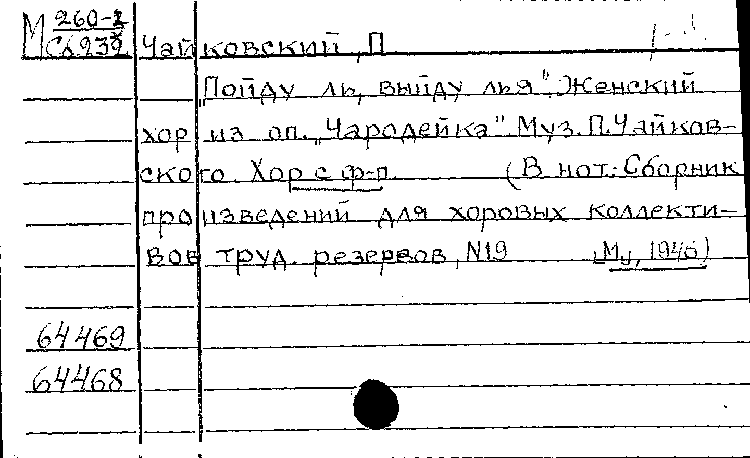 М 260-2
Сб 939 Чайковский, П.
„Пойду ль, выйду ль я". Женский
хор из оп. „Чародейка". Муз. П. Чайков-
ского. Хор с ф-п. (В нот.: Сборник
произведений для хоровых коллекти-
вов труд. резервов, N19 М., 1946)
64469
64468